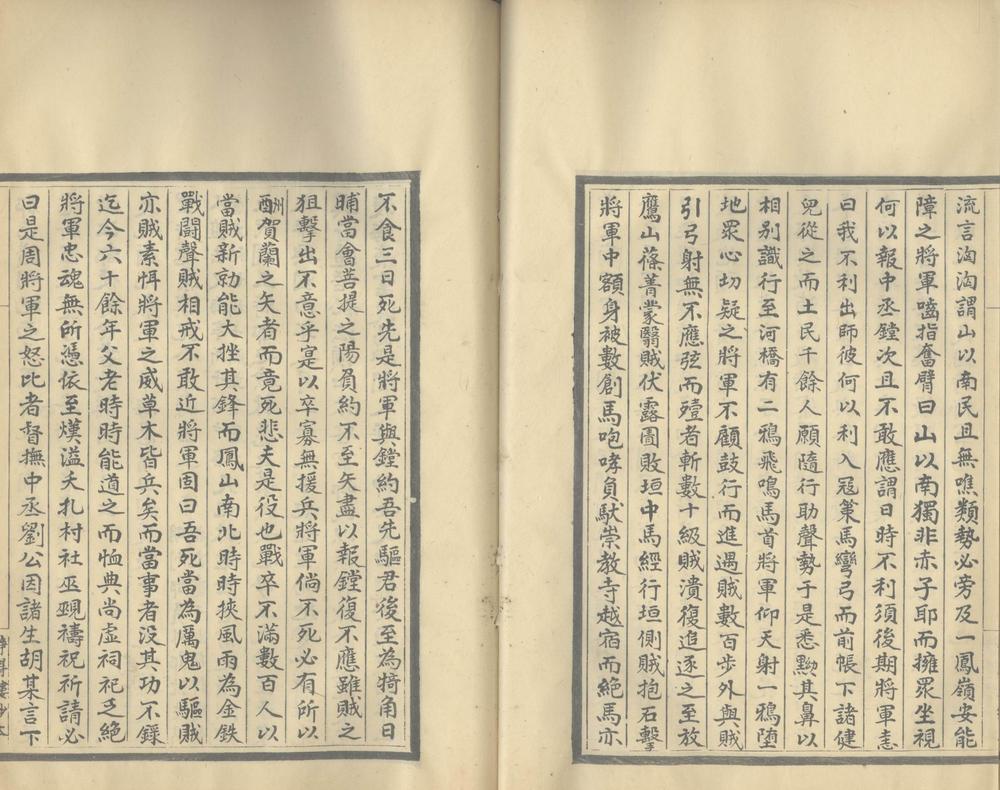 流言洶洶謂山以南民且無噍類勢必旁及一鳳嶺安能
障之將軍嚙指奮臂曰山以南獨非赤子耶而擁眾坐視
何以報中丞鏜次且不敢應謂日時不利須後期將軍恚
曰我不利出師彼何以利入冦策馬彎弓而前帳下諸健
兒從之而土民千餘人願隨行助聲勢于是悉黝其鼻以
相別識行至河橋有二鴉飛鳴馬首將軍仰天射一鴉墮
地眾心切疑之將軍不顧鼓行而進遇賊數百步外與賊
引弓射無不應弦而殪者斬數十級賊潰復追逐之至放
鷹山蓧菁蒙翳賊伏露圊敗垣中馬經行垣側賊抱石擊
將軍中額身被數創馬咆哮負馱崇教寺越宿而絕馬亦
不食三日死先是將軍與鏜約吾先驅君後至為犄角日
晡當會菩提之陽負約不至矢盡以報鏜復不應雖賊之
狙擊出不意乎寔以卒寡無援兵將軍倘不死必有所以
酬賀蘭之矢者而竟死悲夫是役也戰卒不滿數百人以
當賊新勍能大挫其鋒而鳳山南北時時挾風雨為金鉄
戰鬪聲賊相戒不敢近將軍固曰吾死當為厲鬼以驅賊
亦賊素憚將軍之威草木皆兵矣而當事者没其功不錄
迄今六十餘年父老時時能道之而恤典尚虛祠祀乏絕
將軍忠魂無所憑依至熯溢夭札村社巫覡禱祝祈請必
曰是周將軍之怒比者督撫中丞劉公因諸生胡某言下